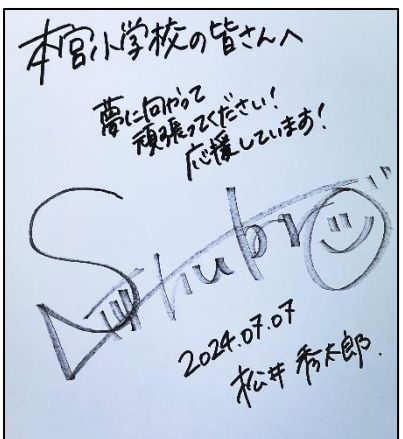 本宮小学校の皆さんへ
夢に向かって
頑張ってください!
応援しています!
Shu
2024.07.07
松井 秀太郎.